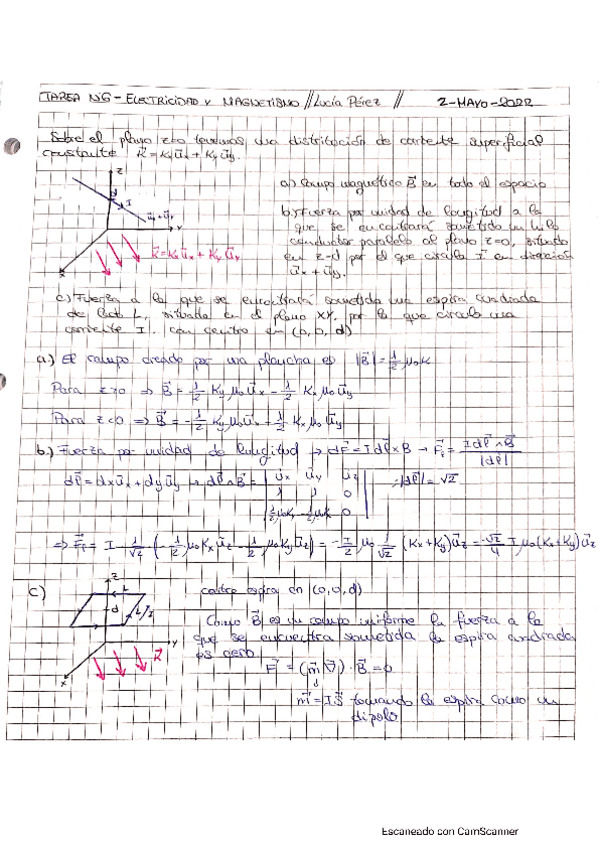 TAREA Nº6 - ELECTRICIDAD Y MAGNETISMO // Lucía Pérez // 2-MAYO-2022
Sobre el plano z=0 tenemos una distribución de corriente superficial
constante K⃗ = Kxu⃗x + Kyu⃗y.
a) Campo magnético B⃗ en todo el espacio
b) Fuerza por unidad de longitud a la
que se encontrará sometido un hilo
conductor paralelo al plano z=0, situado
en z=d por el que circula I⃗ en dirección
u⃗x + u⃗y.
z
I
u⃗x + u⃗y
y
K⃗ = Kx u⃗x + Ky u⃗y
x
c) Fuerza a la que se encontrará sometida una espira cuadrada
de lado L, situada en el plano XY, por la que circula una
corriente I, con centro en (0,0,d)
a.) El campo creado por una plancha es |B⃗| = 1/2 μ0K
Para z>0 ⇒ B⃗ = 1/2 Ky μ0 u⃗x - 1/2 Kx μ0 u⃗y
Para z<0 ⇒ B⃗ = -1/2 Ky μ0 u⃗x + 1/2 Kx μ0 u⃗y
b.) Fuerza por unidad de longitud → dF⃗ = I dl⃗ × B → F⃗l = I dl⃗ ∧ B⃗ / |dl⃗|
dl⃗ = dx u⃗x + dy u⃗y → dl⃗ ∧ B⃗ = | u⃗x u⃗y u⃗z | |dl⃗| = √2
1 1 0
1/2 μ0Ky -1/2 μ0Kx 0
⇒ F⃗l = I 1/√2 (-1/2 μ0 Kx u⃗z - 1/2 μ0 Ky u⃗z) = -I/2 μ0 1/√2 (Kx+Ky) u⃗z = -√2/4 I μ0 (Kx+Ky) u⃗z
c) z
L
d
L/I
y
K⃗
x
centro espira en (0,0,d)
Como B⃗ es un campo uniforme la fuerza a la
que se encuentra sometida la espira cuadrada
es cero
F⃗ = (m⃗ ∇⃗) · B⃗ = 0
m⃗ = I·S⃗ tomando la espira como un
dipolo
Escaneado con CamScanner